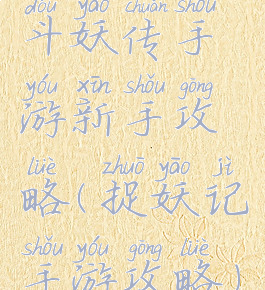 dòu yāo chuán shǒu
斗妖传手
yóu xīn shǒu gōng
游新手攻
lüè zhuō yāo jì
略(捉妖记
shǒu yóu gōng lüè
手游攻略)